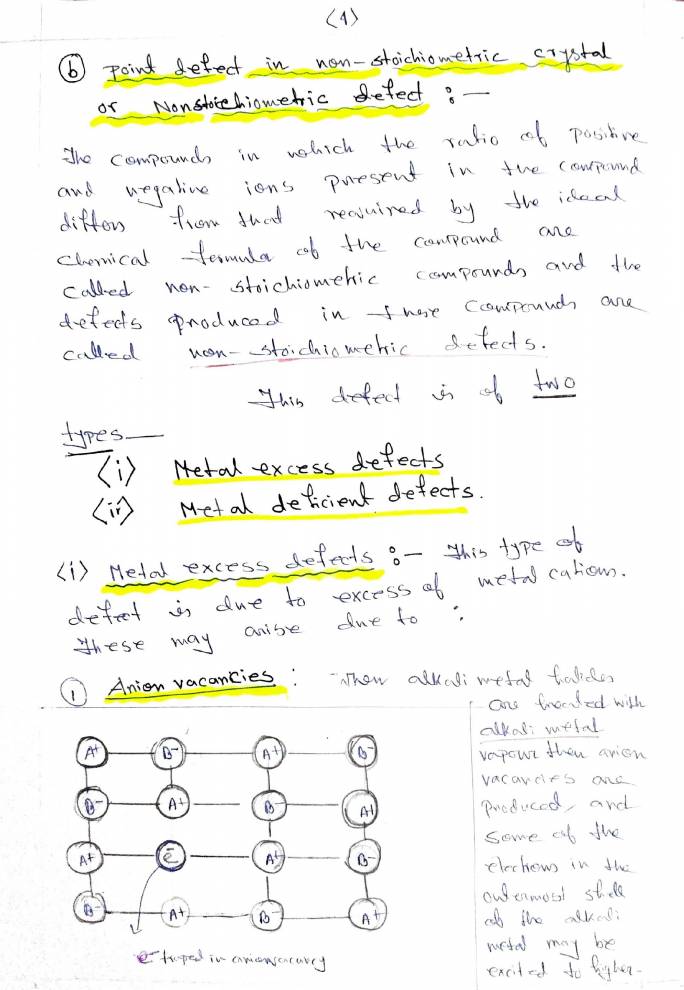 <1>
ⓑ Point defect in non-stoichiometric crystal
or Nonstoichiometric defect :—
The compounds in which the ratio of positive
and negative ions present in the compound
differs from that required by the ideal
chemical formula of the compound are
called non-stoichiometric compounds and the
defects produced in these compounds are
called non-stoichiometric defects.
This defect is of two
types—
<i> Metal excess defects
<ii> Metal deficient defects.
<i> Metal excess defects :— This type of
defect is due to excess of metal cations.
These may arise due to :
① Anion vacancies : When alkali metal halides
are heated with
alkali metal
vapour then anion
vacancies are
produced, and
some of the
electrons in the
outermost shell
of the alkali
metal may be
excited to higher-
A+ B- A+ B-
B- A+ B- A+
A+ e- A+ B-
B- A+ B- A+
e- traped in anion vacancy